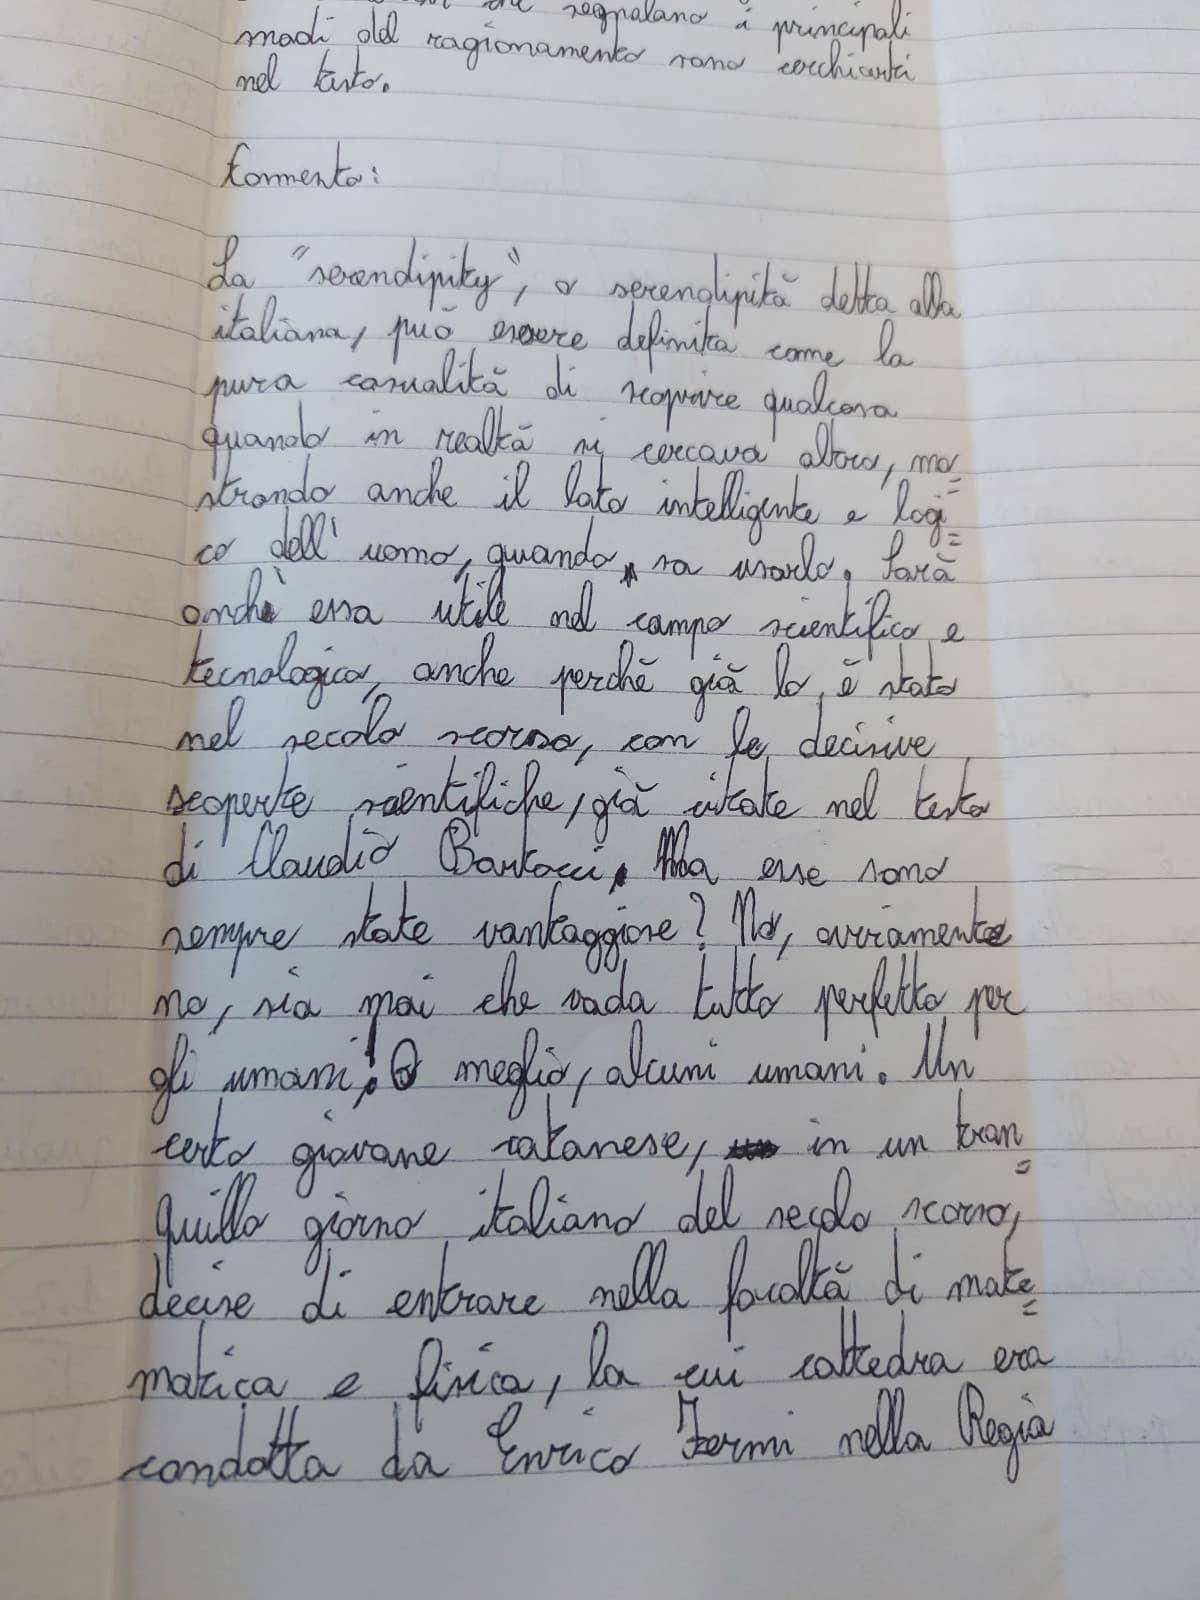 che segnalano i principali
modi del ragionamento sono cerchiati
nel testo.
Commento:
La "serendipity", o serendipità detta alla
italiana, può essere definita come la
pura casualità di scoprire qualcosa
quando in realtà si cercava altro, mo=
strando anche il lato intelligente e logi=
co dell'uomo, quando sa usarlo. Sarà
anch'essa utile nel campo scientifico e
tecnologico, anche perché già lo è stato
nel secolo scorso, con le decisive
scoperte scientifiche, già citate nel testo
di Claudio Bartocci. Ma esse sono
sempre state vantaggiose? No, ovviamente
no, sia mai che vada tutto perfetto per
gli umani. O meglio, alcuni umani. Un
certo giovane catanese, in un tran=
quillo giorno italiano del secolo scorso,
decise di entrare nella facoltà di mate=
matica e fisica, la cui cattedra era
condotta da Enrico Fermi nella Regia